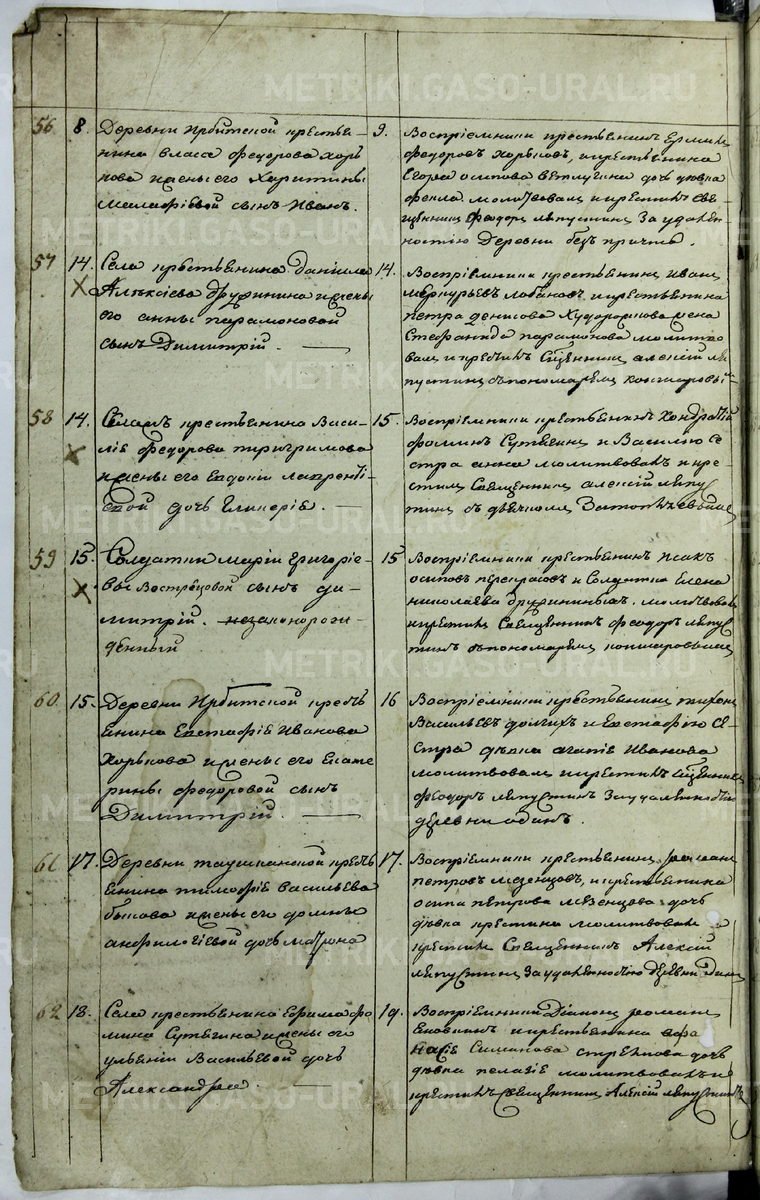 56 8. Деревни Ирбитской крестья-
нина власа федорова хорь
кова и жены его Харитины
сынъ Иванъ.
9. Воспріемники крестьянинъ
федоровъ Хорьковъ, и крестьянина
Егора осипова ветлугина дочь девка
фекла молитвовалъ и крестилъ свя-
щенникъ феодоръ ляпустинъ за удален-
ностію деревни безъ причта.
57 14. Села крестьянина даніила
Алексіева дружинина и жены
его анны парамоновой
сынъ Димитрій.
14. Воспріемники крестьянинъ иванъ
меркурьевъ лобановъ и крестьянина
петра денисова жена
Стефанида парамонова молитво
валъ и крестилъ Священникъ алексій ля
пустинъ съ пономаремъ
58 14. крестьянина Васи-
лія федорова
и жены его Евдокіи лаврентіе
вой дочь Гликерія.
15. Воспріемники крестьянинъ Кондратій
фоминъ Сутягинъ и Василію се
стра анна молитвовалъ и кре-
стилъ Священникъ алексій ляпу
стинъ съ дьячкомъ
59 15. Солдатки маріи григоріе-
вы Вострецовой сынъ ди-
митрій. незаконорож-
денный
15 Воспріемники крестьянинъ исакъ
осиповъ и Солдатка Елена
николаева дружининыхъ. молитвовалъ
и крестилъ Священникъ феодоръ ляпус
тинъ съ пономаремъ
60. 15. Деревни Ирбитской кресть
янина Евстафія Иванова
Хорькова и жены его Екате
рины федоровой сынъ
Димитрій.
16 Воспріемники крестьянинъ тихонъ
Васильевъ долгихъ и Евстафію се-
стра девка агафія Иванова
молитвовалъ и крестилъ священникъ
феодоръ ляпустинъ за удаленностію
деревни одинъ.
61 17. Деревни таушканской кресть
янина тимофія васильева
быкова и жены его домны
дочь матрона
17. Воспріемники крестьянинъ романъ
петровъ мезенцовъ, и крестьянина
осипа петрова мезенцова дочь
девка крестина молитвовалъ и
крестилъ Священникъ Алексій
ляпустинъ за удаленностію деревни
62 18. Села крестьянина Ефима фо
мина Сутягина и жены его
ульяніи Васильевой дочь
Александра.
19. Воспріемники Діаконъ романъ
и крестьянина афа
насія Симанова стрекова дочь
девка пелагія молитвовалъ и
крестилъ Священникъ Алексій ляпустинъ
METRIKI.GASO-URAL.RU